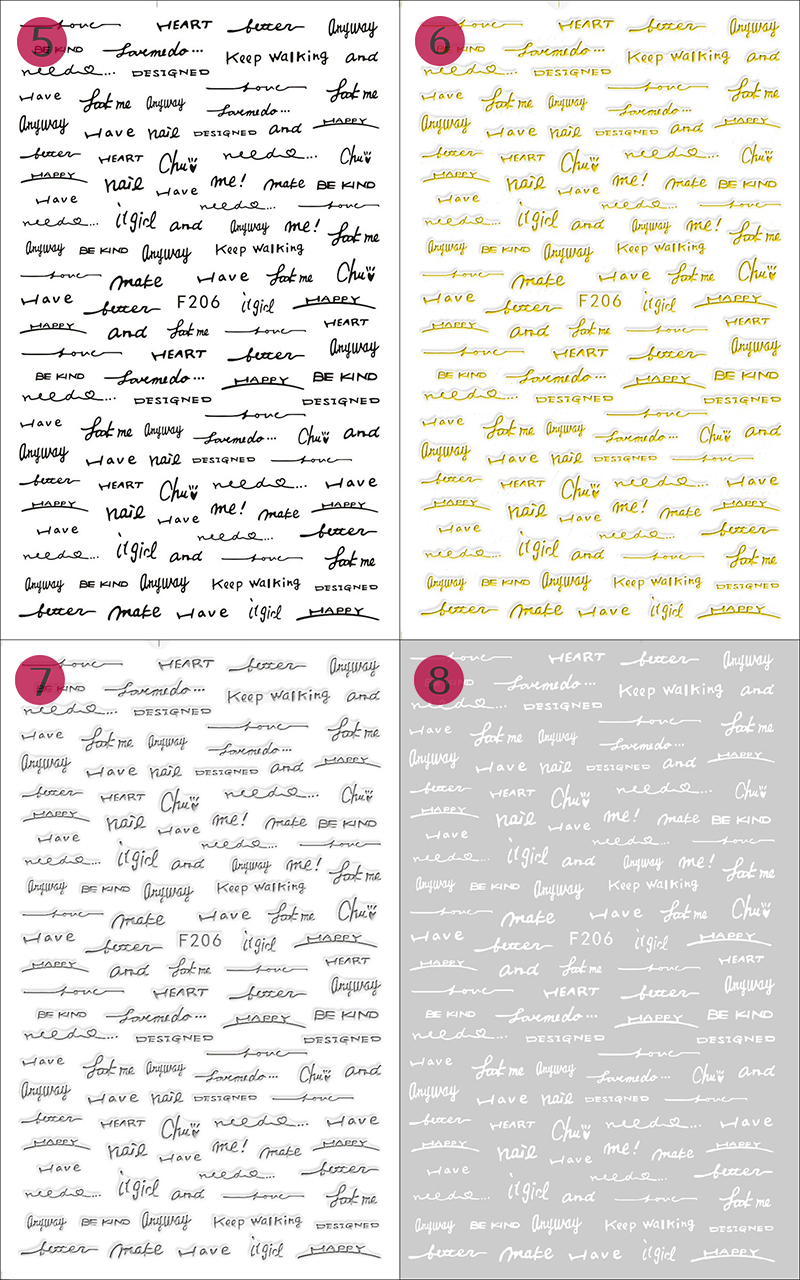 5
love HEART better Anyway
BE KIND Lovemedo... Keep Walking and
need... DESIGNED love
Have Look me Anyway Lovemedo... Look me
Anyway Have nail DESIGNED and HAPPY
better HEART Chu need... Chu
HAPPY nail Have me! make BE KIND
Have need... love
need... itgirl and Anyway me! Look me
Anyway BE KIND Anyway Keep Walking
love make Have Look me Chu
Have better F206 itgirl HAPPY
HAPPY and Look me love HEART
love HEART better Anyway
BE KIND Lovemedo... HAPPY BE KIND
need... DESIGNED love DESIGNED
Have Look me Anyway Lovemedo... Chu and
Anyway Have nail DESIGNED love
better HEART Chu need... Have
HAPPY nail Have me! make HAPPY
Have need... better
need... itgirl and love Look me
Anyway BE KIND Anyway Keep Walking DESIGNED
better make Have itgirl HAPPY
6
love HEART better Anyway
BE KIND Lovemedo... Keep Walking and
need... DESIGNED love
Have Look me Anyway Lovemedo... Look me
Anyway Have nail DESIGNED and HAPPY
better HEART Chu need... Chu
HAPPY nail Have me! make BE KIND
Have need... love
need... itgirl and Anyway me! Look me
Anyway BE KIND Anyway Keep Walking
love make Have Look me Chu
Have better F206 itgirl HAPPY
HAPPY and Look me love HEART
love HEART better Anyway
BE KIND Lovemedo... HAPPY BE KIND
need... DESIGNED love DESIGNED
Have Look me Anyway Lovemedo... Chu and
Anyway Have nail DESIGNED love
better HEART Chu need... Have
HAPPY nail Have me! make HAPPY
Have need... better
need... itgirl and love Look me
Anyway BE KIND Anyway Keep Walking DESIGNED
better make Have itgirl HAPPY
7
love HEART better Anyway
BE KIND Lovemedo... Keep Walking and
need... DESIGNED love
Have Look me Anyway Lovemedo... Look me
Anyway Have nail DESIGNED and HAPPY
better HEART Chu need... Chu
HAPPY nail Have me! make BE KIND
Have need... love
need... itgirl and Anyway me! Look me
Anyway BE KIND Anyway Keep Walking
love make Have Look me Chu
Have better F206 itgirl HAPPY
HAPPY and Look me love HEART
love HEART better Anyway
BE KIND Lovemedo... HAPPY BE KIND
need... DESIGNED love DESIGNED
Have Look me Anyway Lovemedo... Chu and
Anyway Have nail DESIGNED love
better HEART Chu need... Have
HAPPY nail Have me! make HAPPY
Have need... better
need... itgirl and love Look me
Anyway BE KIND Anyway Keep Walking DESIGNED
better make Have itgirl HAPPY
8
love HEART better Anyway
BE KIND Lovemedo... Keep Walking and
need... DESIGNED love
Have Look me Anyway Lovemedo... Look me
Anyway Have nail DESIGNED and HAPPY
better HEART Chu need... Chu
HAPPY nail Have me! make BE KIND
Have need... love
need... itgirl and Anyway me! Look me
Anyway BE KIND Anyway Keep Walking
love make Have Look me Chu
Have better F206 itgirl HAPPY
HAPPY and Look me love HEART
love HEART better Anyway
BE KIND Lovemedo... HAPPY BE KIND
need... DESIGNED love DESIGNED
Have Look me Anyway Lovemedo... Chu and
Anyway Have nail DESIGNED love
better HEART Chu need... Have
HAPPY nail Have me! make HAPPY
Have need... better
need... itgirl and love Look me
Anyway BE KIND Anyway Keep Walking DESIGNED
better make Have itgirl HAPPY